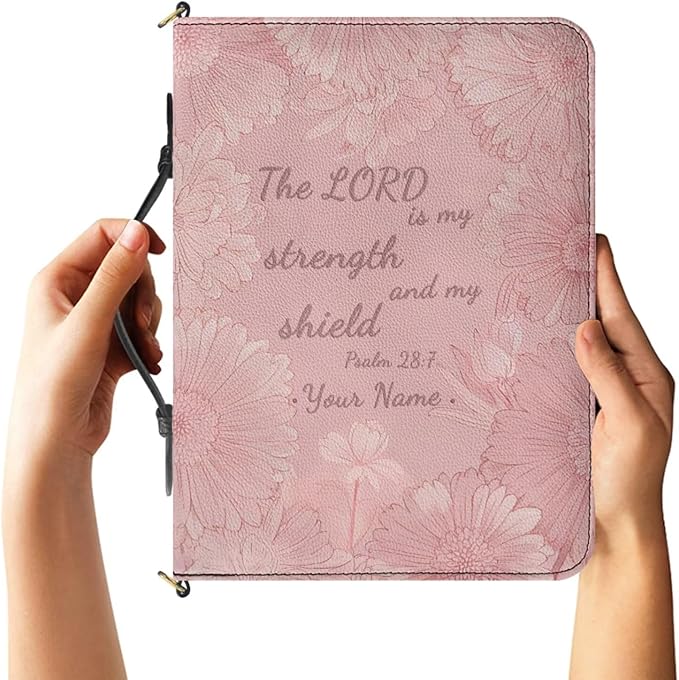 The LORD
is my
strength
and my
shield
Psalm 28:7
· Your Name ·